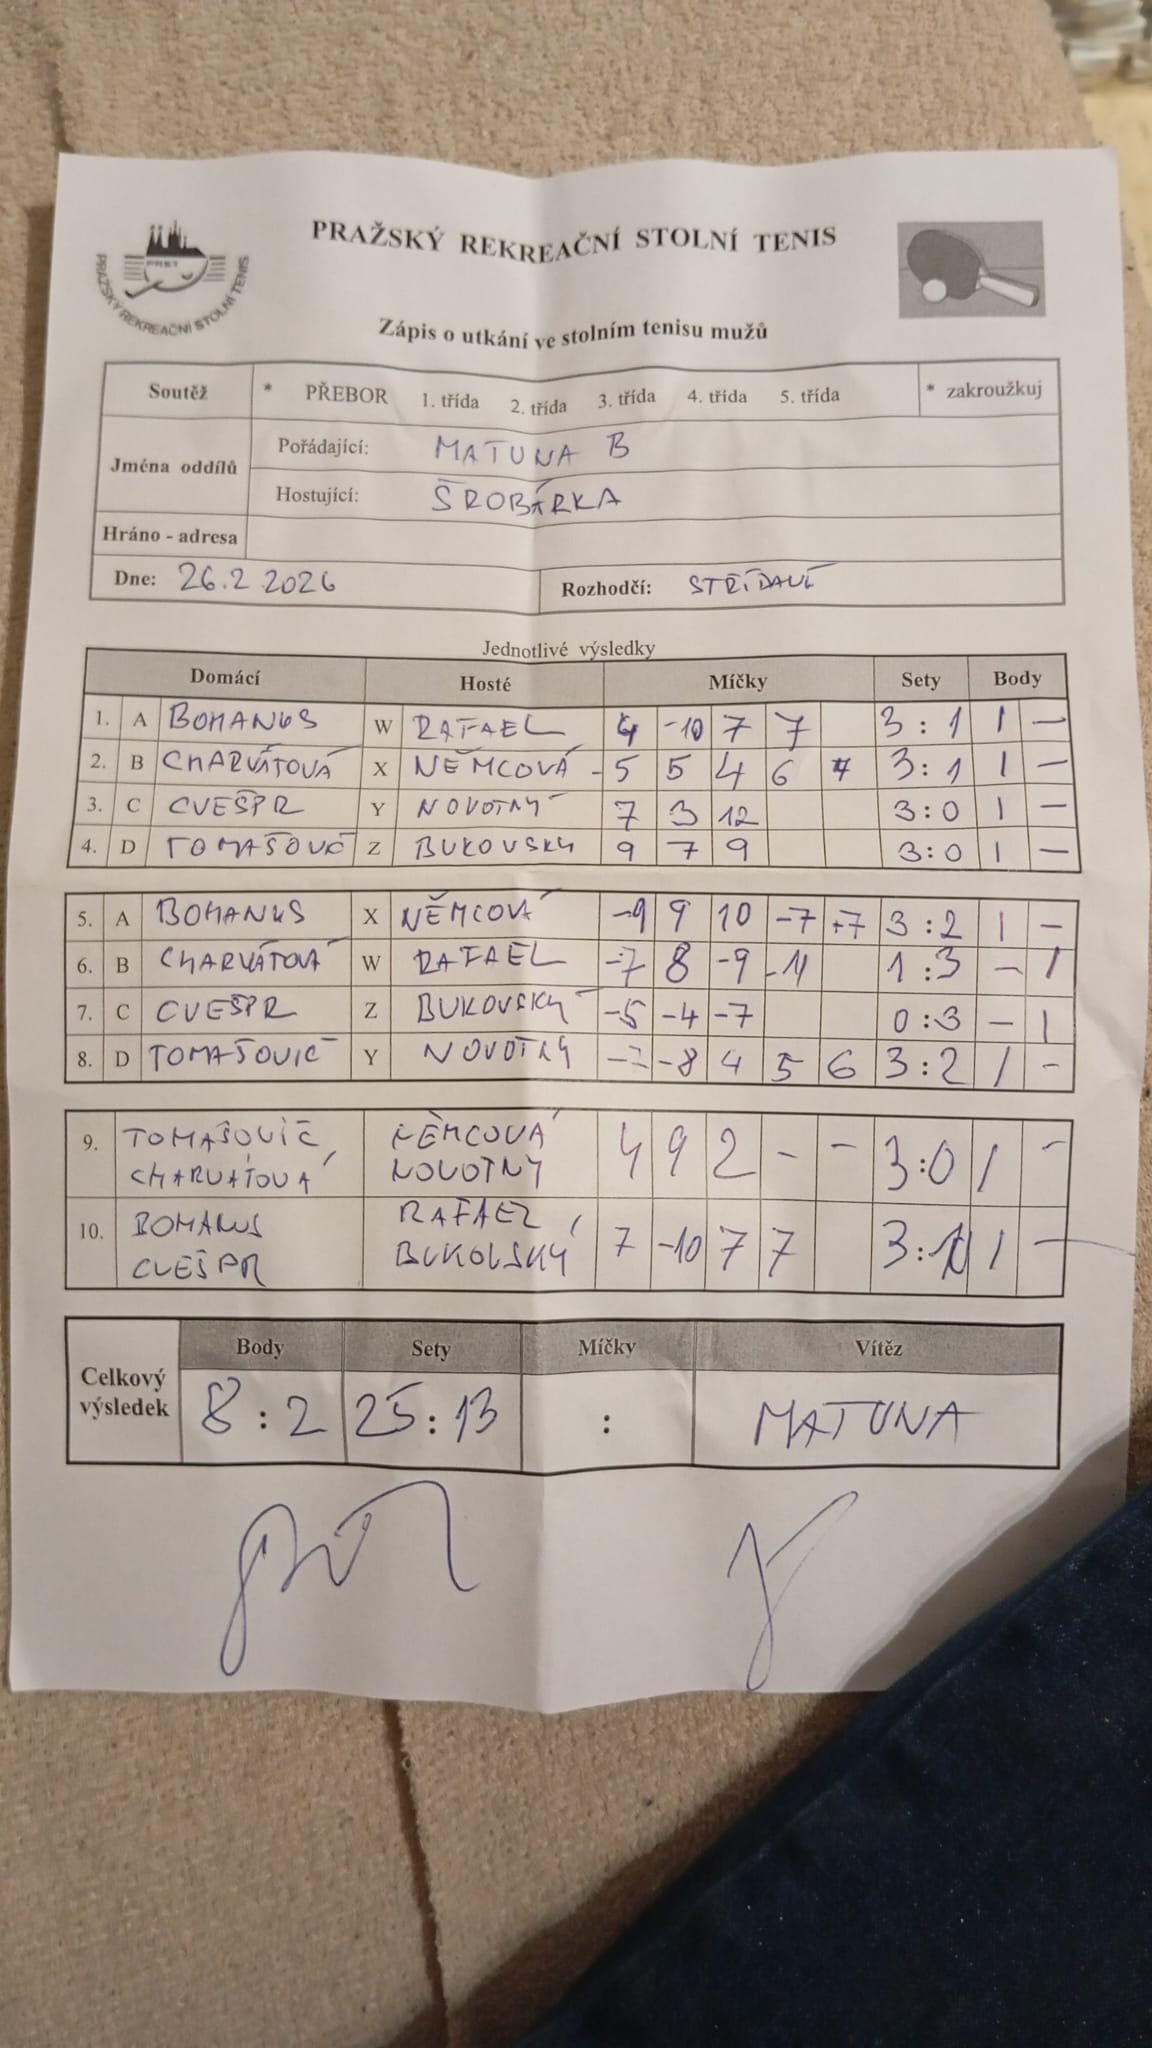 PRAŽSKÝ REKREAČNÍ STOLNÍ TENIS
PRST
PRAŽSKÝ REKREAČNÍ STOLNÍ TENIS
Zápis o utkání ve stolním tenisu mužů
Soutěž * PŘEBOR 1. třída 2. třída 3. třída 4. třída 5. třída * zakroužkuj
Jména oddílů
Pořádající: MATUNA B
Hostující: ŠROBÁRKA
Hráno - adresa
Dne: 26.2.2026 Rozhodčí: STŘÍDAVĚ
Jednotlivé výsledky
Domácí Hosté Míčky Sety Body
1. A BOHANUS W RAFAEL 4 -10 7 7 3:1 1 -
2. B CHARVÁTOVÁ X NĚMCOVÁ -5 5 4 6 3:1 1 -
3. C CVEŠPR Y NOVOTNÝ 7 3 12 3:0 1 -
4. D TOMAŠOVIČ Z BUKOVSKÝ 9 7 9 3:0 1 -
5. A BOHANUS X NĚMCOVÁ -9 9 10 -7 +7 3:2 1 -
6. B CHARVÁTOVÁ W RAFAEL -7 8 -9 -11 1:3 - 1
7. C CVEŠPR Z BUKOVSKÝ -5 -4 -7 0:3 - 1
8. D TOMAŠOVIČ Y NOVOTNÝ -7 -8 4 5 6 3:2 1 -
9. TOMAŠOVIČ, NĚMCOVÁ 4 9 2 - - 3:0 1 -
CHARVÁTOVÁ NOVOTNÝ
10. BOHANUS RAFAEL, 7 -10 7 7 3:1 1 -
CVEŠPR BUKOVSKÝ
Celkový výsledek
Body Sety Míčky Vítěz
8:2 25:13 : MATUNA